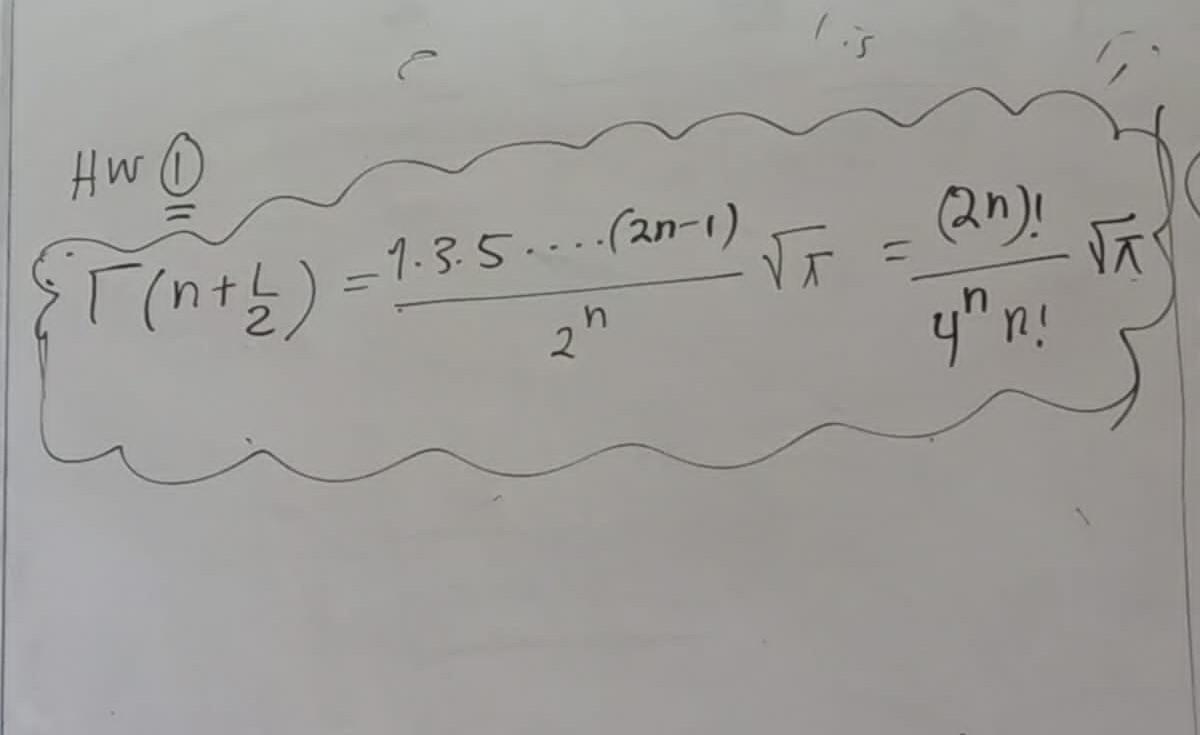 HW ①
Γ(n+1/2) = 1.3.5....(2n-1)/2^n √π = (2n)!/4^n n! √π